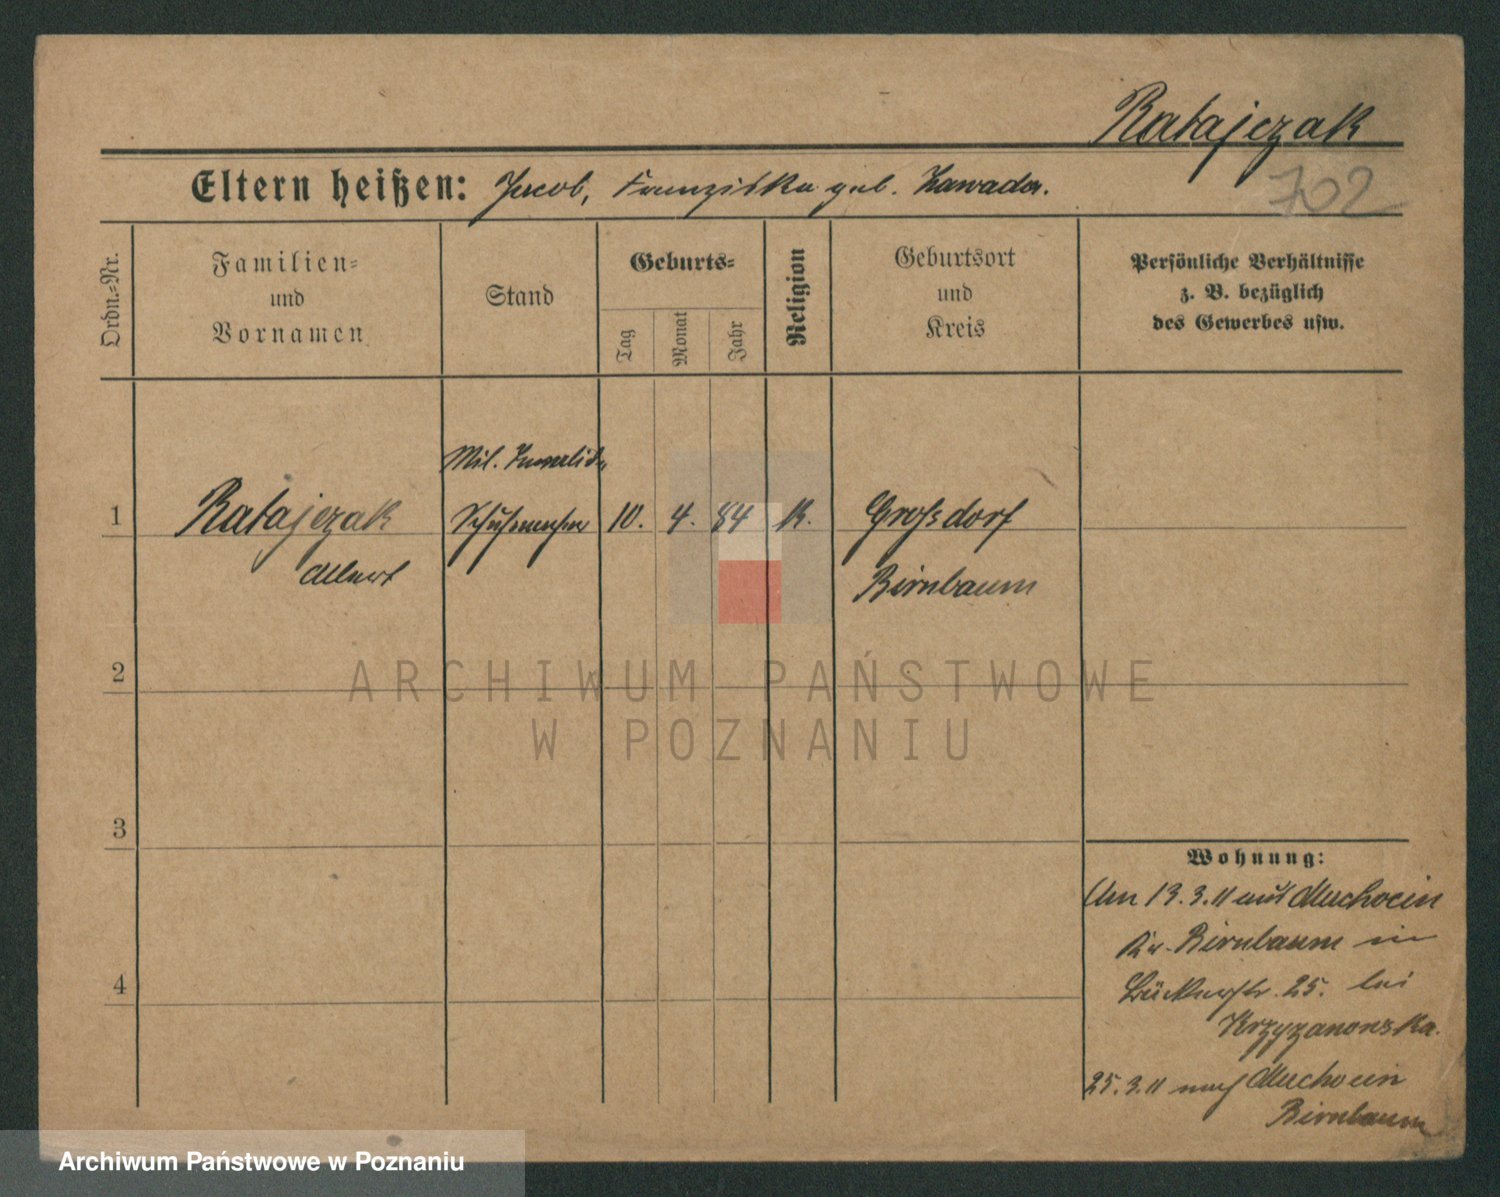 Ratajczak
Eltern heißen: Jacob, Franziska geb. Zawada.
702
Ordn.=Nr.
Familien=
und
Vornamen
Stand
Geburts=
Tag
Monat
Jahr
Religion
Geburtsort
und
Kreis
Persönliche Verhältnisse
z. B. bezüglich
des Gewerbes usw.
Mil. Invalide
1 Ratajczak Schuhmacher 10. 4. 84 K. Großdorf
Albert Birnbaum
2
ARCHIWUM PAŃSTWOWE
W POZNANIU
3
4
Wohnung:
Am 13.3.11 aus Muchocin
Kr. Birnbaum in
Bäckerstr. 25. bei
Krzyzanowska.
25.3.11 nach Muchocin
Birnbaum
Archiwum Państwowe w Poznaniu